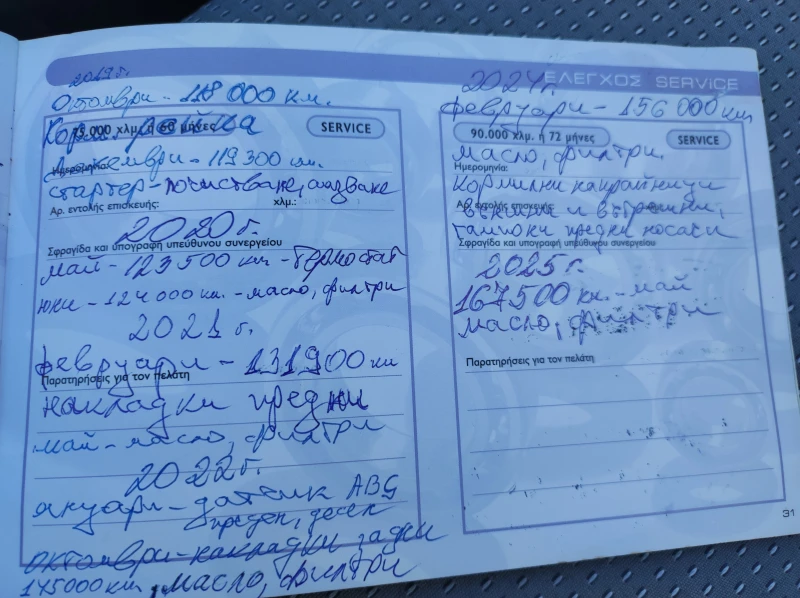 ΕΛΕΓΧΟΣ SERVICE
2019 г.
Октомври - 118 000 км.
75.000 χλμ. ή 60 μήνες
SERVICE
Декември - 119 300 км.
Ημερομηνία:
стартер - почистване, смазване
Αρ. εντολής επισκευής:
χλμ.:
2020 г.
Σφραγίδα και υπογραφή υπεύθυνου συνεργείου
май - 123 500 км - термостат
юни - 124 000 км. - масло, филтри
2021 г.
февруари - 131 900 км
Παρατηρήσεις για τον πελάτη
накладки предни
май - масло, филтри
2022 г.
януари - датчик ABS
преден, десен
октомври - накладки задни
145000 км, масло, филтри
2024 г.
февруари - 156 000 км
90.000 χλμ. ή 72 μήνες
SERVICE
масло, филтри.
Ημερομηνία:
Кормилни накрайници
Αρ. εντολής επισκευής:
външни и вътрешни,
Σφραγίδα και υπογραφή υπεύθυνου συνεργείου
тампони предни носачи
2025 г.
167500 км. - май
масло, филтри
Παρατηρήσεις για τον πελάτη
31